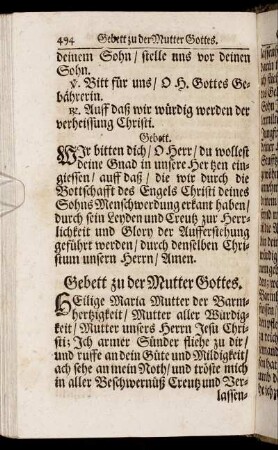 494 Gebett zu der Mutter Gottes.
deinem Sohn/ stelle uns vor deinen
Sohn.
℣. Bitt für uns/ O H. Gottes Ge-
bährerin.
℟. Auff daß wir würdig werden der
verheissung Christi.
Gebett.
WIr bitten dich/ O Herr/ du wollest
deine Gnad in unsere Hertzen ein-
giessen/ auff daß/ die wir durch die
Bottschafft des Engels Christi deines
Sohns Menschwerdung erkant haben/
durch sein Leyden und Creutz zur Herr-
lichkeit und Glory der Aufferstehung
geführt werden/ durch denselben Chri-
stum unsern Herrn/ Amen.
Gebett zu der Mutter Gottes.
HEilige Maria Mutter der Barm-
hertzigkeit/ Mutter aller Würdig-
keit/ Mutter unsers Herrn Jesu Chri-
sti: Ich armer Sünder fliehe zu dir/
und ruffe an dein Güte und Mildigkeit/
ach sehe an mein Noth/ und tröste mich
in aller Beschwernüß Creutz und Ver-
lassen-